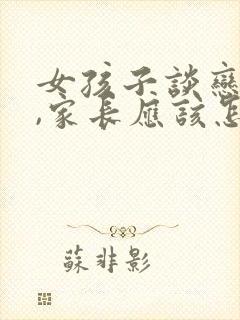 女孩子談戀
,家長應該怎
蘇非影